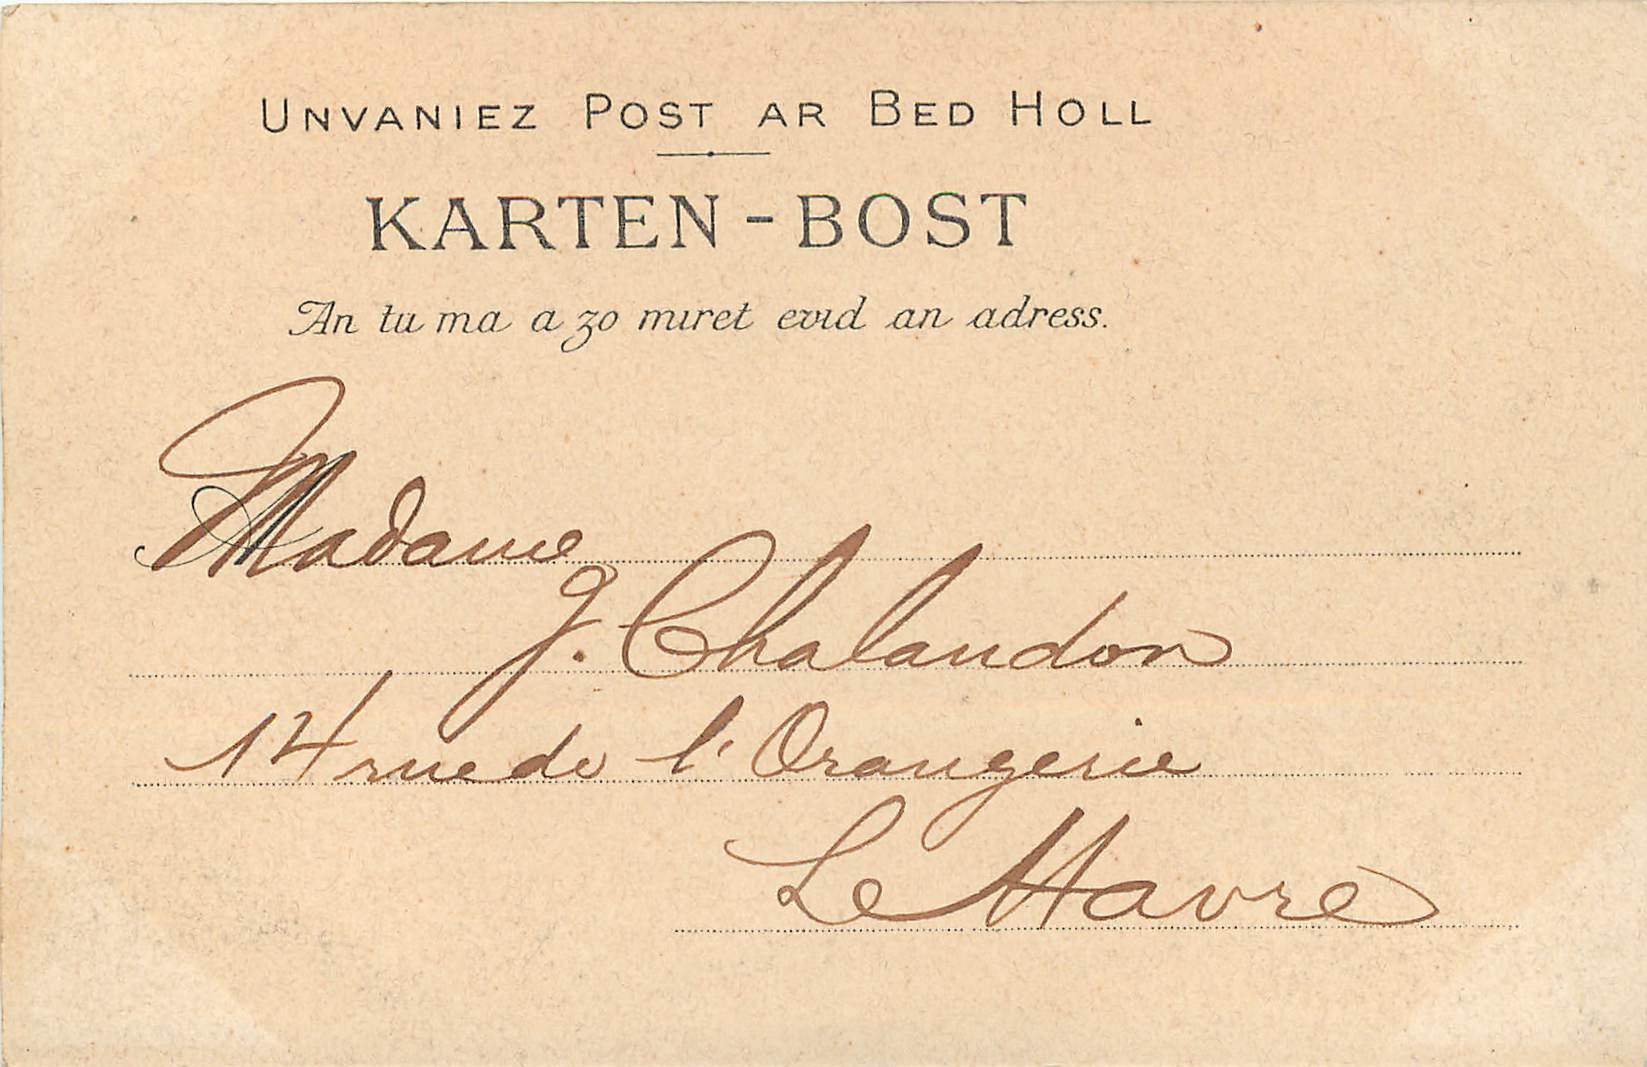 UNVANIEZ POST AR BED HOLL
KARTEN-BOST
An tu ma a zo miret evid an adress.
Madame
J. Chalandon
14 rue de l'Orangerie
Le Havre